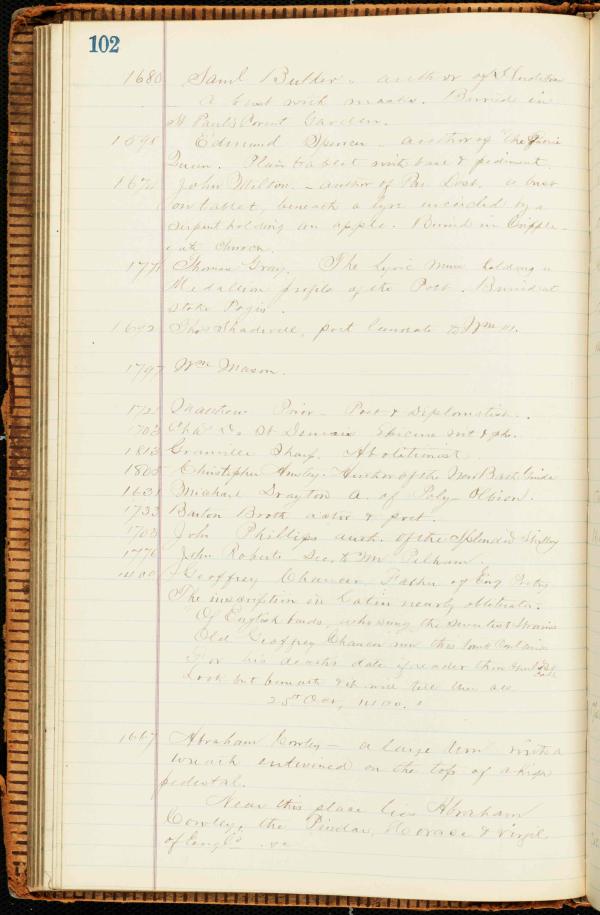 102
1680 Saml Butler. author of Hudibra
A bust with masks. Buried in
St Paul's Covent Garden.
1598 Edmund Spencer - author of "The Faerie
Queen. Plain tablet with base & pediment.
1674 John Milton. - author of Par. Lost. a bust
on tablet, beneath a lyre encircled by a
serpent holding an apple. Buried in Cripple-
gate Church.
1771 Thomas Gray. The Lyric Muse holding a
Medallion profile of the Poet. Buried at
Stoke Pogis.
1692 Thos Shadwell, poet laureate to Wm
1797 Wm Mason.
1721 Matthew Prior - Poet & Diplomatist.
1703 Chas De St Denis
1813 Granville Sharp, Abolitionist
1805 Christopher Anstey. Author of the New Bath Guide
1631 Michael Drayton A. of Poly Olbion.
1733 Barton Booth actor & poet.
1708 John Phillips auth. of the Splendid Shilling
1776 John Roberts Sec. to Mr Pelham.
1400 Geoffrey Chaucer, Father of Eng Poetry
The inscription in Latin nearly obliterate.
Of English bards, who sung the sweetest strains
Old Geoffrey Chaucer now this tomb contains
For his death's date if reader thou shouldst call
Look but beneath & it will tell thee all
25th Oct, 1400."
1667 Abraham Cowley - a large Urn with a
wreath entwined on the top of a high
pedestal.
Near this place lies Abraham
Cowley, the Pindar, Horace & Virgil
of Engld. &c